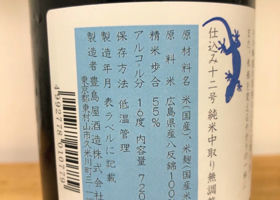 仕込み十二号 純米中取り無調整
原材料名 米(国産)、米麹(国産米)
原料米 広島県産八反錦100
精米歩合 55%
アルコール分 16度 内容量 720
保存方法 低温管理
製造年月 表ラベルに記載
製造者 豊島屋酒造株式会社
東京都東村山市久米川町三-1